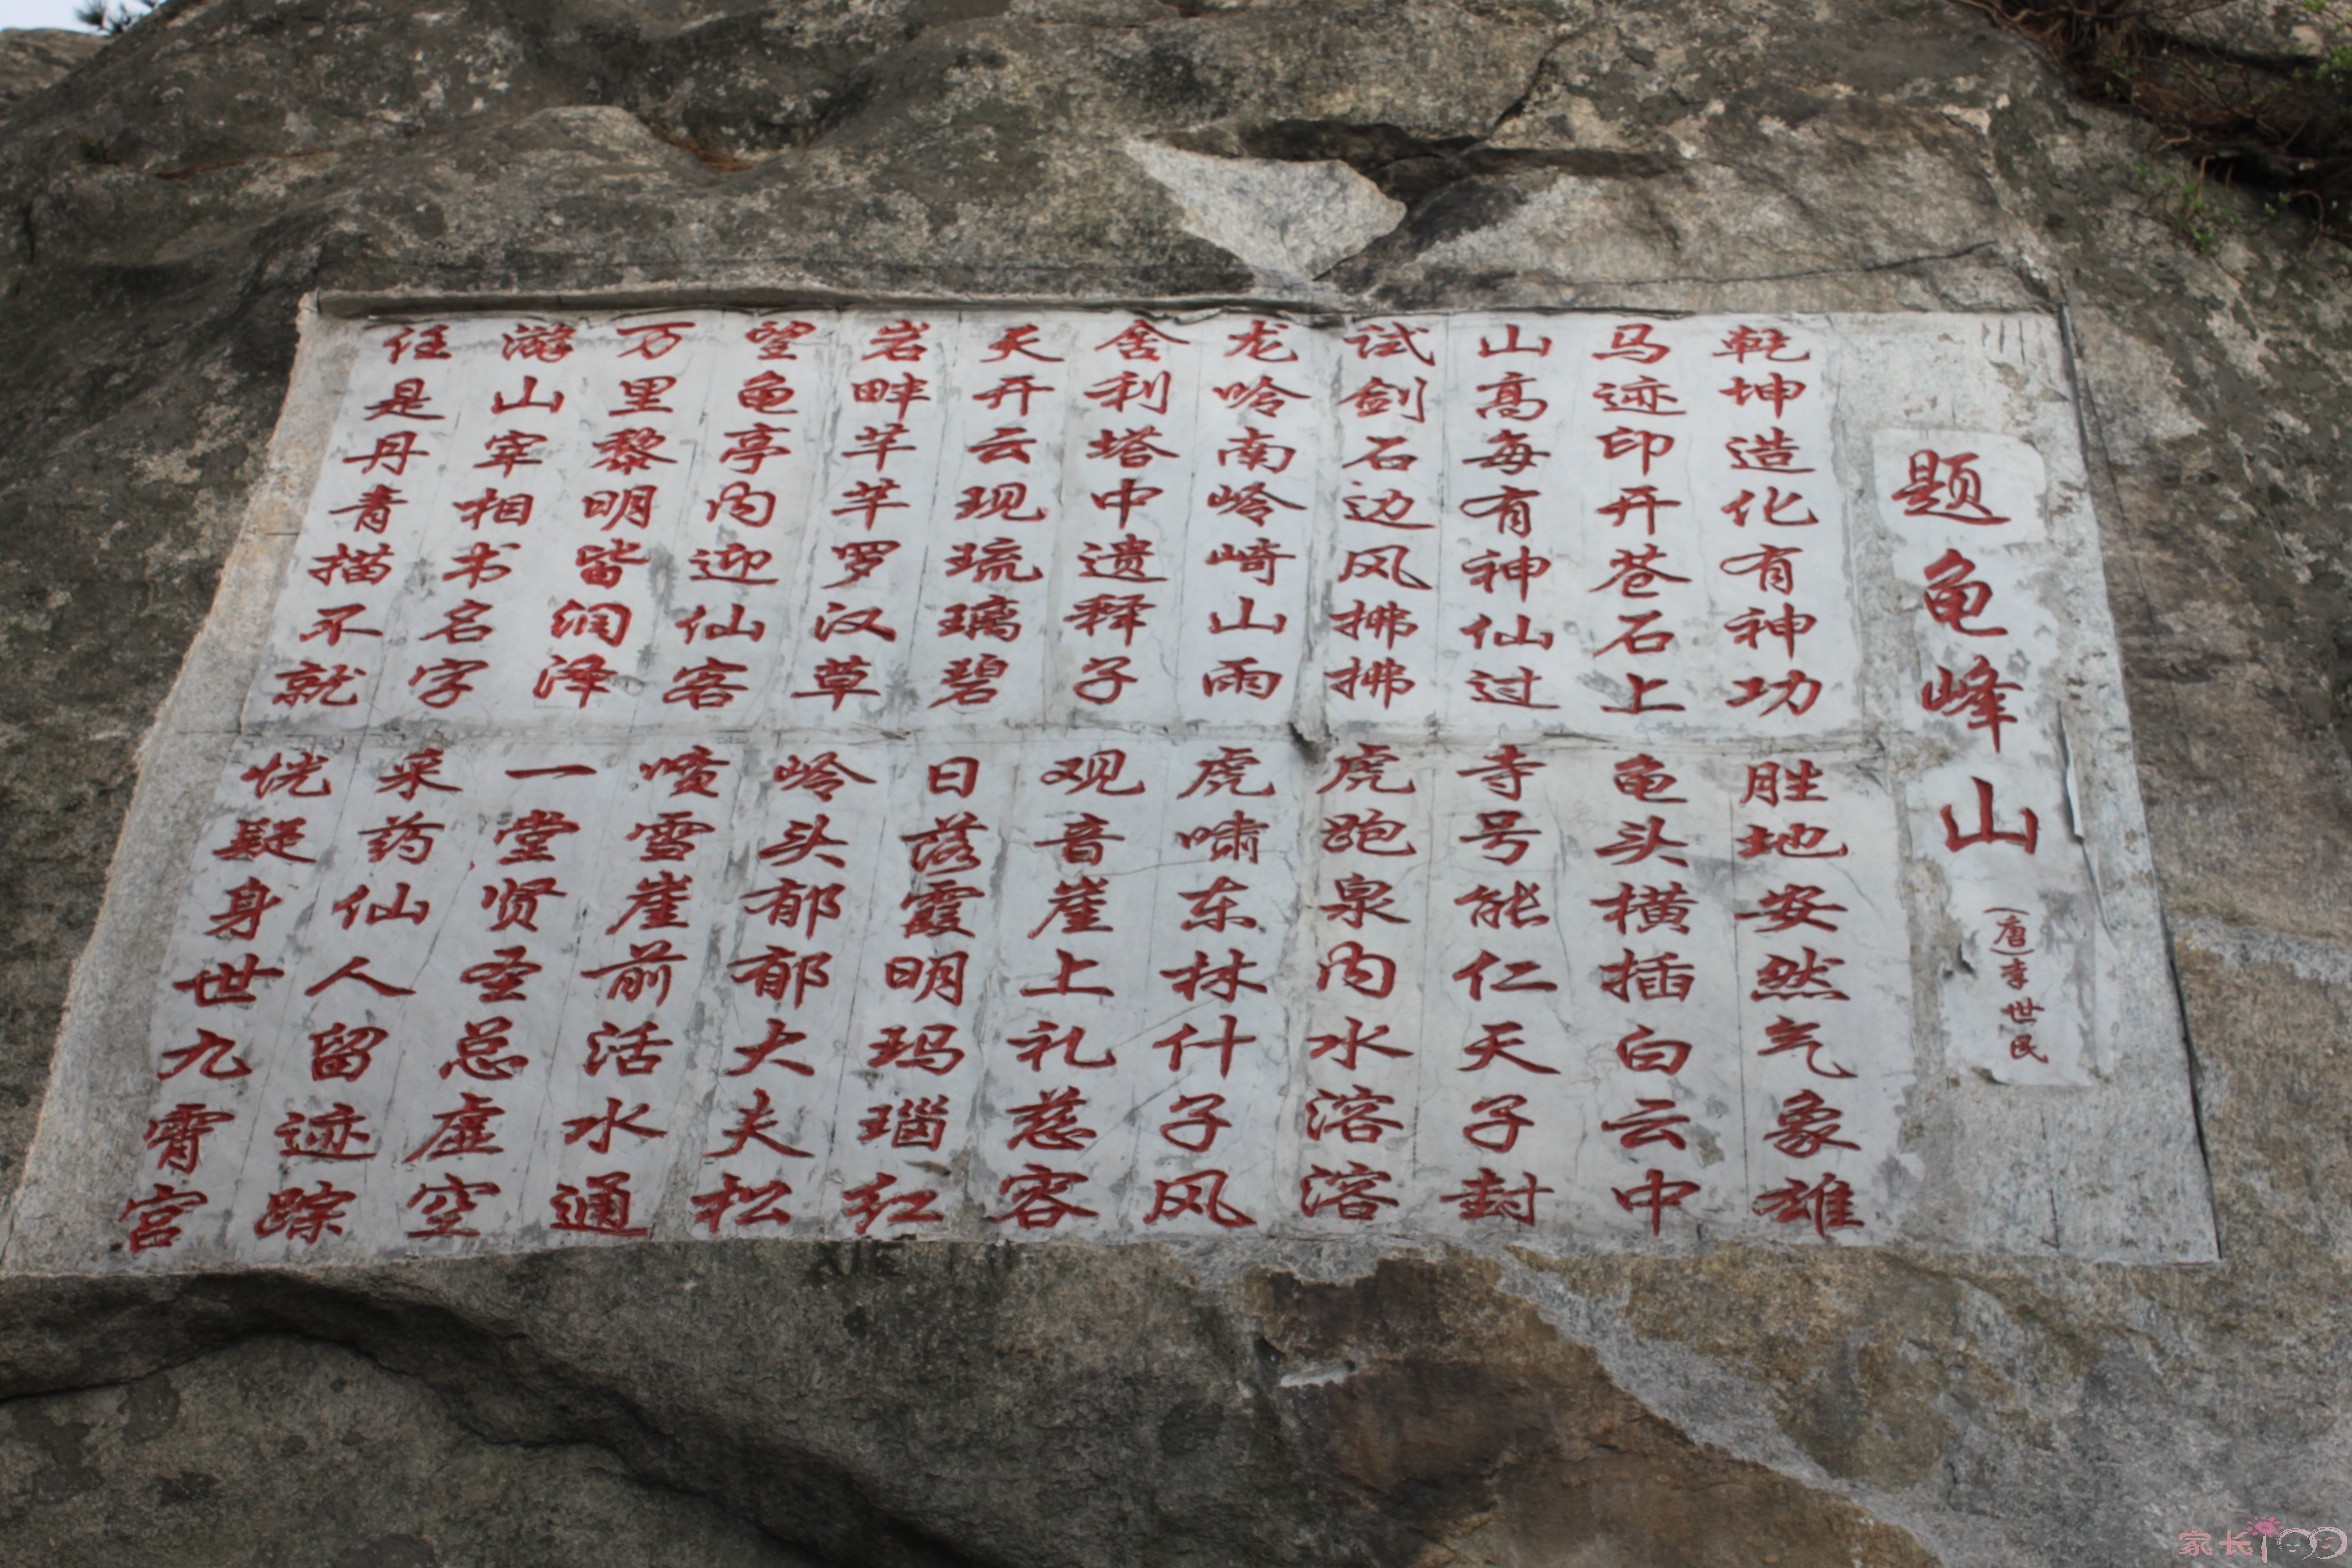 题龟峰山
(唐)李世民
乾坤造化有神功
胜地安然气象雄
马迹印开苍石上
龟头横插白云中
山高每有神仙过
寺号能仁天子封
试剑石边风拂拂
虎跑泉内水溶溶
龙吟南岭崎山雨
虎啸东林什子风
舍利塔中遗释子
观音崖上礼慈容
天开云现琉璃碧
日落霞明玛瑙红
岩畔芊芊罗汉草
岭头郁郁大夫松
望龟亭内迎仙客
喷雪崖前活水通
万里黎明皆润泽
一堂贤圣总虚空
游山宰相书名字
采药仙人留迹踪
任是丹青描不就
恍疑身世九霄宫
家长100